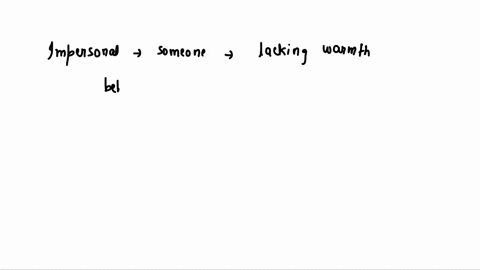 Impersonal → someone → lacking warmth
bel